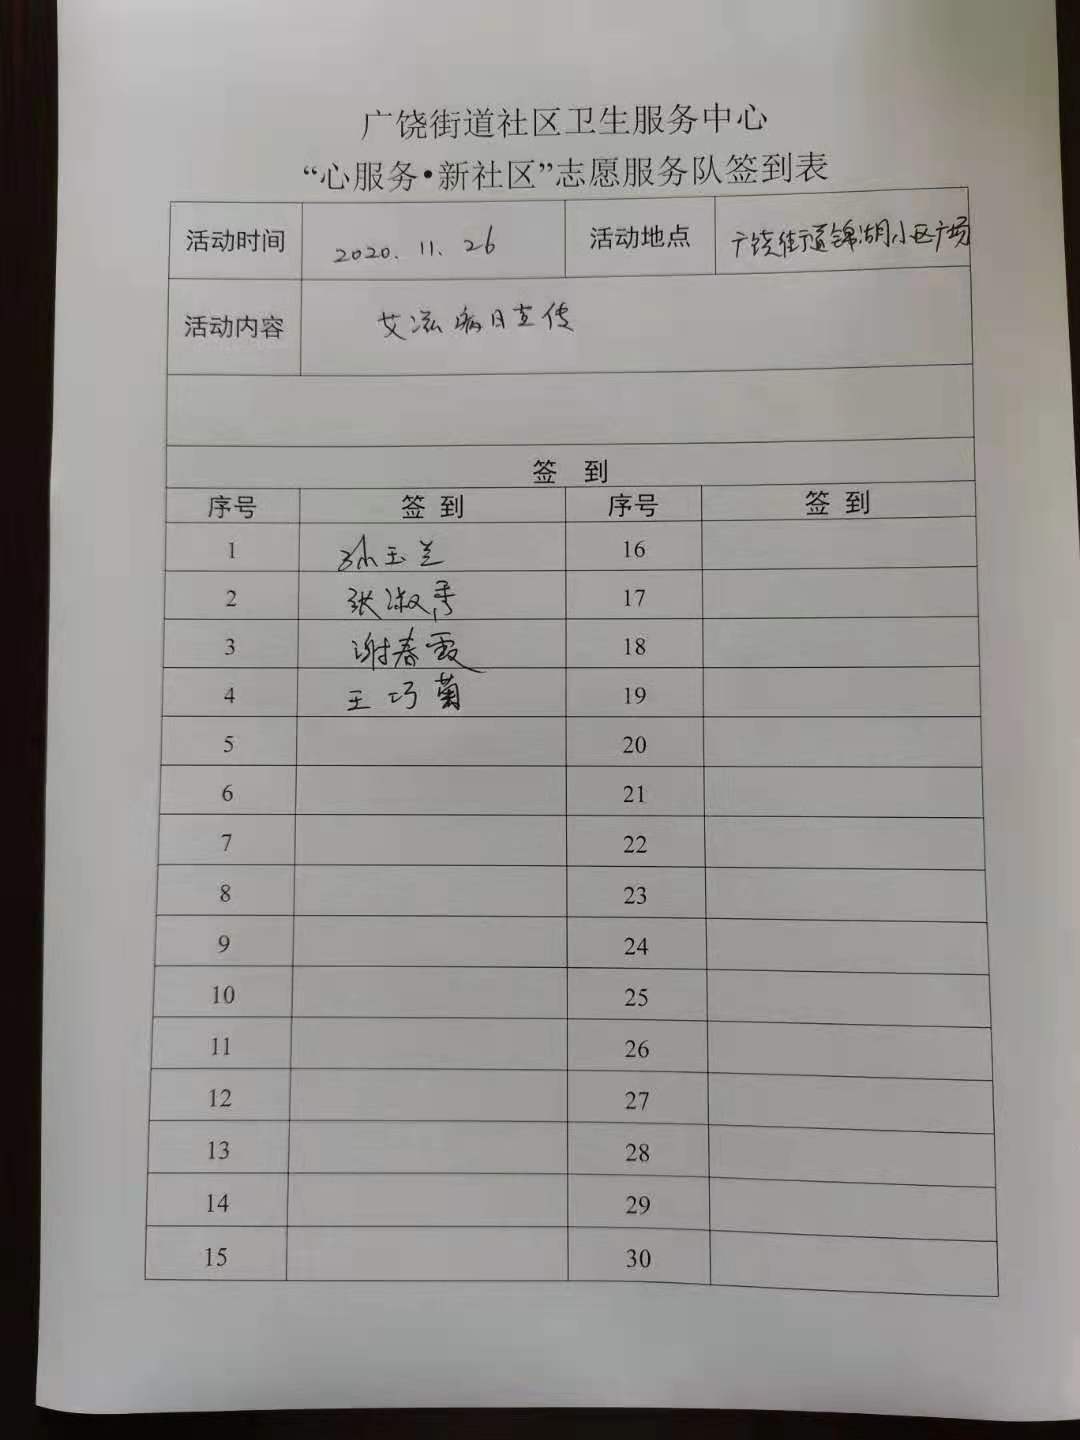 广饶街道社区卫生服务中心
“心服务•新社区”志愿服务队签到表
活动时间 2020.11.26 活动地点 广饶街道锦湖小区广场
活动内容 艾滋病日宣传
签 到
序号 签 到 序号 签 到
1 孙玉兰 16
2 张淑秀 17
3 谢春霞 18
4 王巧菊 19
5 20
6 21
7 22
8 23
9 24
10 25
11 26
12 27
13 28
14 29
15 30